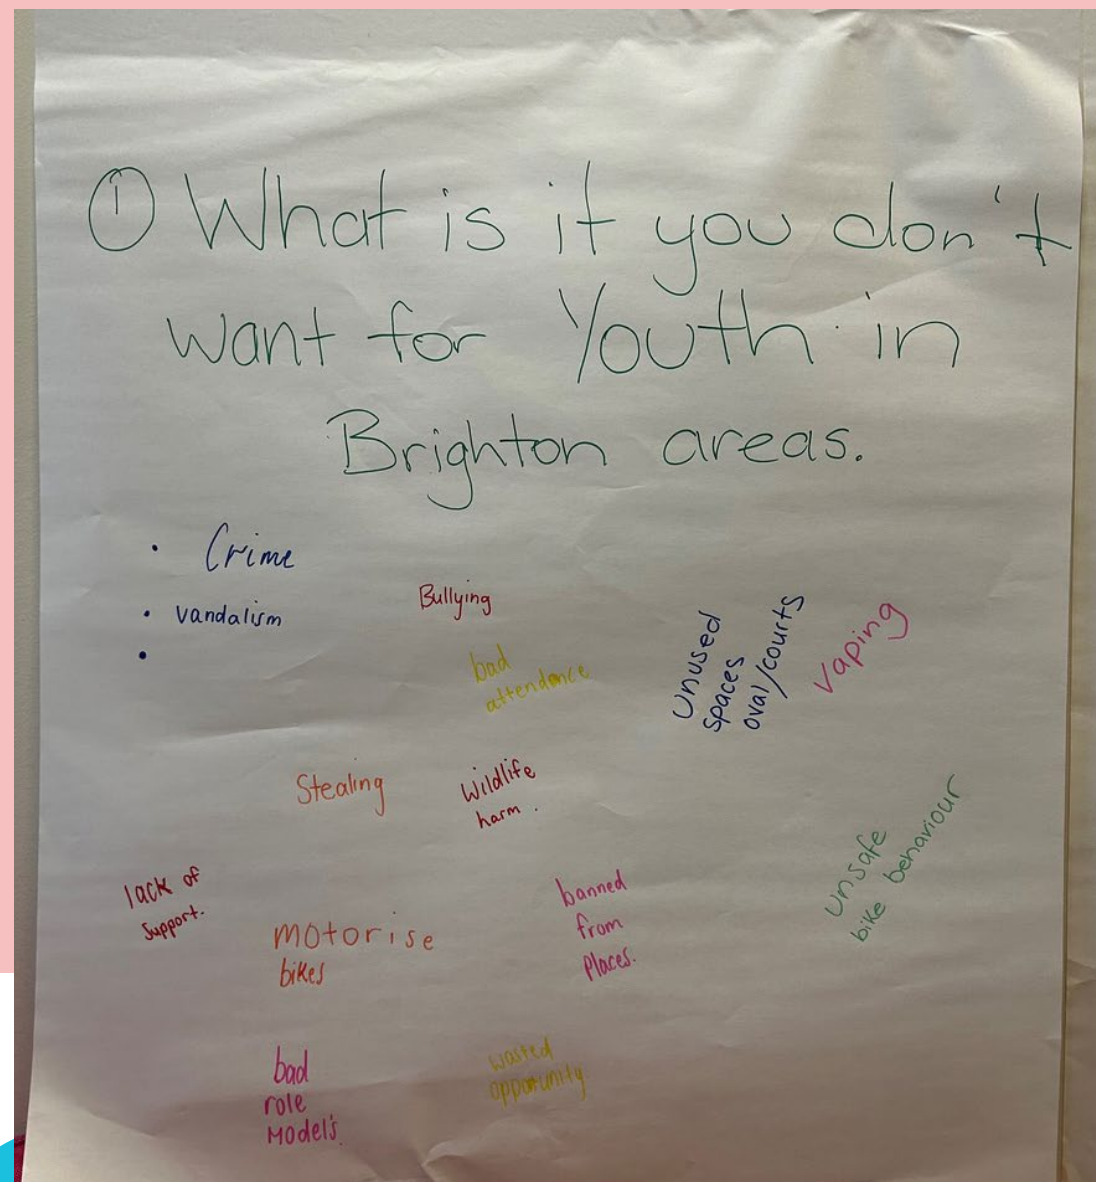 ① What is it you don't
want for Youth in
Brighton areas.
• Crime
• vandalism
•
Bullying
bad
attendance
Unused
spaces
oval/courts
vaping
Stealing
Wildlife
harm.
lack of
support.
motorise
bikes
banned
from
places.
Unsafe
bike behaviour
bad
role
Model's.
wasted
opportunity